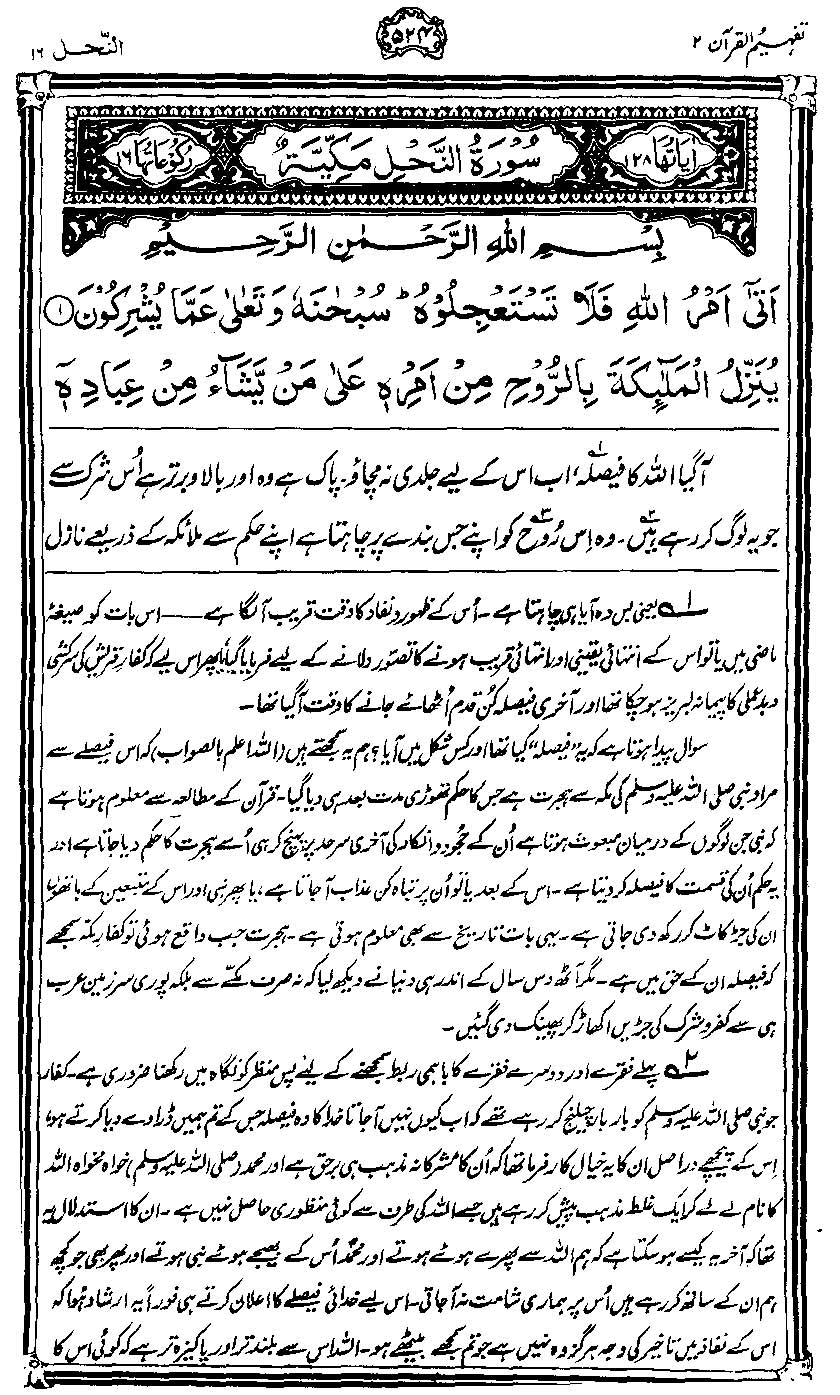 تفہیم القرآن ۲
۵۲۴
النّحل ۱۶
اٰیاتھا ۱۲۸
سُوْرَةُ النَّحْلِ مَكِّيَّةٌ
رکوعاتھا ۱۶
بِسْمِ اللهِ الرَّحْمٰنِ الرَّحِيْمِ
اَتٰۤى اَمْرُ اللهِ فَلَا تَسْتَعْجِلُوْهُ ؕ سُبْحٰنَهٗ وَتَعٰلٰى عَمَّا يُشْرِكُوْنَ ۱
يُنَزِّلُ الْمَلٰٓئِكَةَ بِالرُّوْحِ مِنْ اَمْرِهٖ عَلٰى مَنْ يَّشَآءُ مِنْ عِبَادِهٖۤ
آگیا اللہ کا فیصلہ۱، اب اس کے لیے جلدی نہ مچاؤ۔ پاک ہے وہ اور بالا و برتر ہے اُس شرک سے
جو یہ لوگ کر رہے ہیں۲۔ وہ اِس رُوح۳ کو اپنے جس بندے پر چاہتا ہے اپنے حکم سے ملائکہ کے ذریعے نازل
۱ یعنی بس وہ آیا ہی چاہتا ہے۔ اُس کے ظہور و نفاذ کا وقت قریب آ لگا ہے ـــــ اس بات کو صیغۂ
ماضی میں یا تو اس کے انتہائی یقینی اور انتہائی قریب ہونے کا تصوّر دلانے کے لیے فرمایا گیا، یا پھر اس لیے کہ کفارِ قریش کی سرکشی
و بد عملی کا پیمانہ لبریز ہو چکا تھا اور آخری فیصلہ کُن قدم اُٹھائے جانے کا وقت آگیا تھا۔
سوال پیدا ہوتا ہے کہ یہ ”فیصلہ“ کیا تھا اور کس شکل میں آیا؟ ہم یہ سمجھتے ہیں (اللہ اعلم بالصواب) کہ اس فیصلے سے
مراد نبی صلی اللہ علیہ وسلم کی مکہ سے ہجرت ہے جس کا حکم تھوڑی مدت بعد ہی دیا گیا۔ قرآن کے مطالعہ سے معلوم ہوتا ہے
کہ نبی جن لوگوں کے درمیان مبعوث ہوتا ہے اُن کے جُحود و انکار کی آخری سرحد پر پہنچ کر ہی اُسے ہجرت کا حکم دیا جاتا ہے اور
یہ حکم اُن کی قسمت کا فیصلہ کر دیتا ہے۔ اس کے بعد یا تو اُن پر تباہ کن عذاب آ جاتا ہے، یا پھر نبی اور اس کے متبعین کے ہاتھوں
ان کی جڑ کاٹ کر رکھ دی جاتی ہے۔ یہی بات تاریخ سے بھی معلوم ہوتی ہے۔ ہجرت جب واقع ہوئی تو کفار مکہ سمجھے
کہ فیصلہ ان کے حق میں ہے۔ مگر آٹھ دس سال کے اندر ہی دنیا نے دیکھ لیا کہ نہ صرف مکے سے بلکہ پوری سرزمین عرب
ہی سے کفر و شرک کی جڑیں اکھاڑ کر پھینک دی گئیں۔
۲ پہلے فقرے اور دوسرے فقرے کا باہمی ربط سمجھنے کے لیے پس منظر کو نگاہ میں رکھنا ضروری ہے۔ کفار
جو نبی صلی اللہ علیہ وسلم کو بار بار چیلنج کر رہے تھے کہ اب کیوں نہیں آ جاتا خدا کا وہ فیصلہ جس کے تم ہمیں ڈراوے دیا کرتے ہو،
اِس کے پیچھے دراصل ان کا یہ خیال کارفرما تھا کہ اُن کا مشرکانہ مذہب ہی برحق ہے اور محمد (صلی اللہ علیہ وسلم) خواہ مخواہ اللہ
کا نام لے لے کر ایک غلط مذہب پیش کر رہے ہیں جسے اللہ کی طرف سے کوئی منظوری حاصل نہیں ہے۔ ان کا استدلال یہ
تھا کہ آخر یہ کیسے ہو سکتا ہے کہ ہم اللہ سے پھرے ہوئے ہوتے اور محمدؐ اُس کے بھیجے ہوئے نبی ہوتے اور پھر بھی جو کچھ
ہم ان کے ساتھ کر رہے ہیں اُس پر ہماری شامت نہ آ جاتی۔ اس لیے خدائی فیصلے کا اعلان کرتے ہی فوراً یہ ارشاد ہُوا کہ
اس کے نفاذ میں تاخیر کی وجہ ہرگز وہ نہیں ہے جو تم سمجھے بیٹھے ہو۔ اللہ اس سے بلند تر اور پاکیزہ تر ہے کہ کوئی اس کا